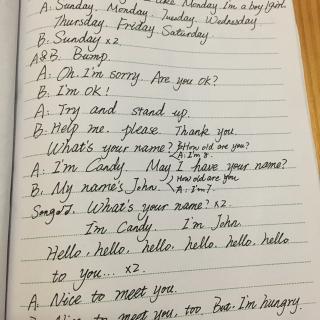 A: Sunday. Monday. Monday. I'm a boy/girl.
Thursday. Friday. Saturday.
B: Sunday x2.
A&B. Bump.
A: Oh. I'm sorry. Are you OK?
B: I'm OK!
A: Try and stand up.
B: Help me. please. Thank you.
What's your name? B: How old are you?
A: I'm 8.
A: I'm Candy. May I have your name?
B: My name's John. How old are you
A: I'm 7.
Song 27. What's your name? x2.
I'm Candy. I'm John.
Hello, hello, hello, hello, hello, hello
to you... x2.
A: Nice to meet you.
B: Nice to meet you, too. But I'm hungry.